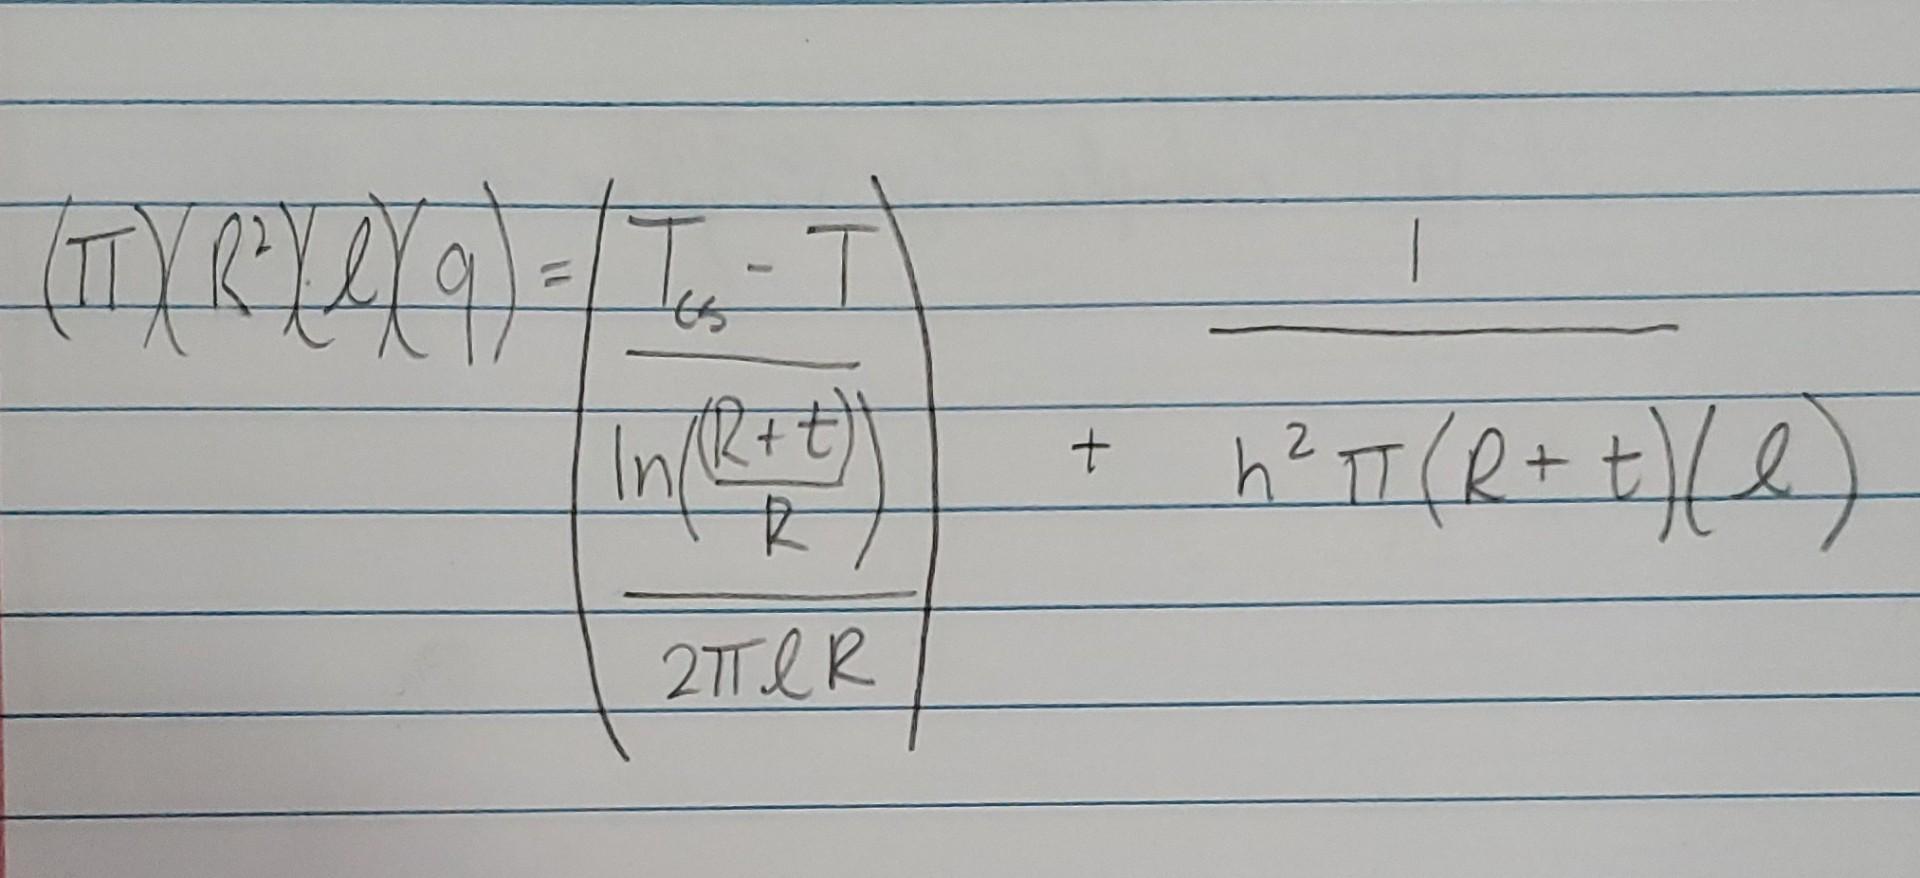 (π)(R²)(l)(q) = ((T_cs - T) / (ln((R+t)/R) / 2πlR)) + 1 / (h²π(R+t)(l))